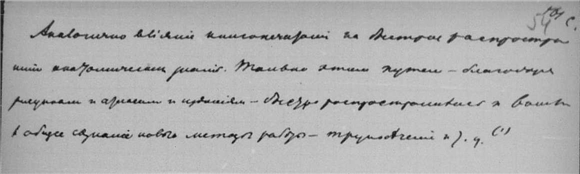 54 об с.
Аналогично влiянiе книгопечатанiя на быстрое распростра
нiе анатомических знанiй. Только этим путем – благодаря
рисункам и атласам и изданiям – быстро распространились и вошли
в общее сознанiе новые методы работы – трупосеченiя и т. д. (1)